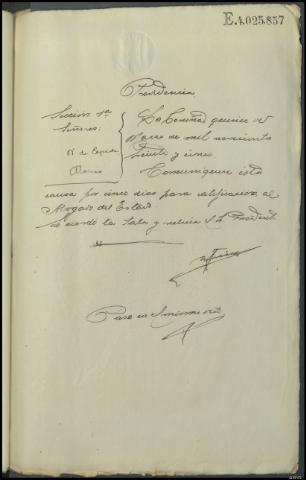 E.4.025.857
Providencia
Sección 1ª
Señores:
La Coruña quince de
Marzo de mil novecientos
veinte y cinco
Comuníquese esta
causa por cinco días para calificación al
Abogado del Estado
Lo acordó la Sala y rubrica el Sr. Presidente
Pasó en el mismo día